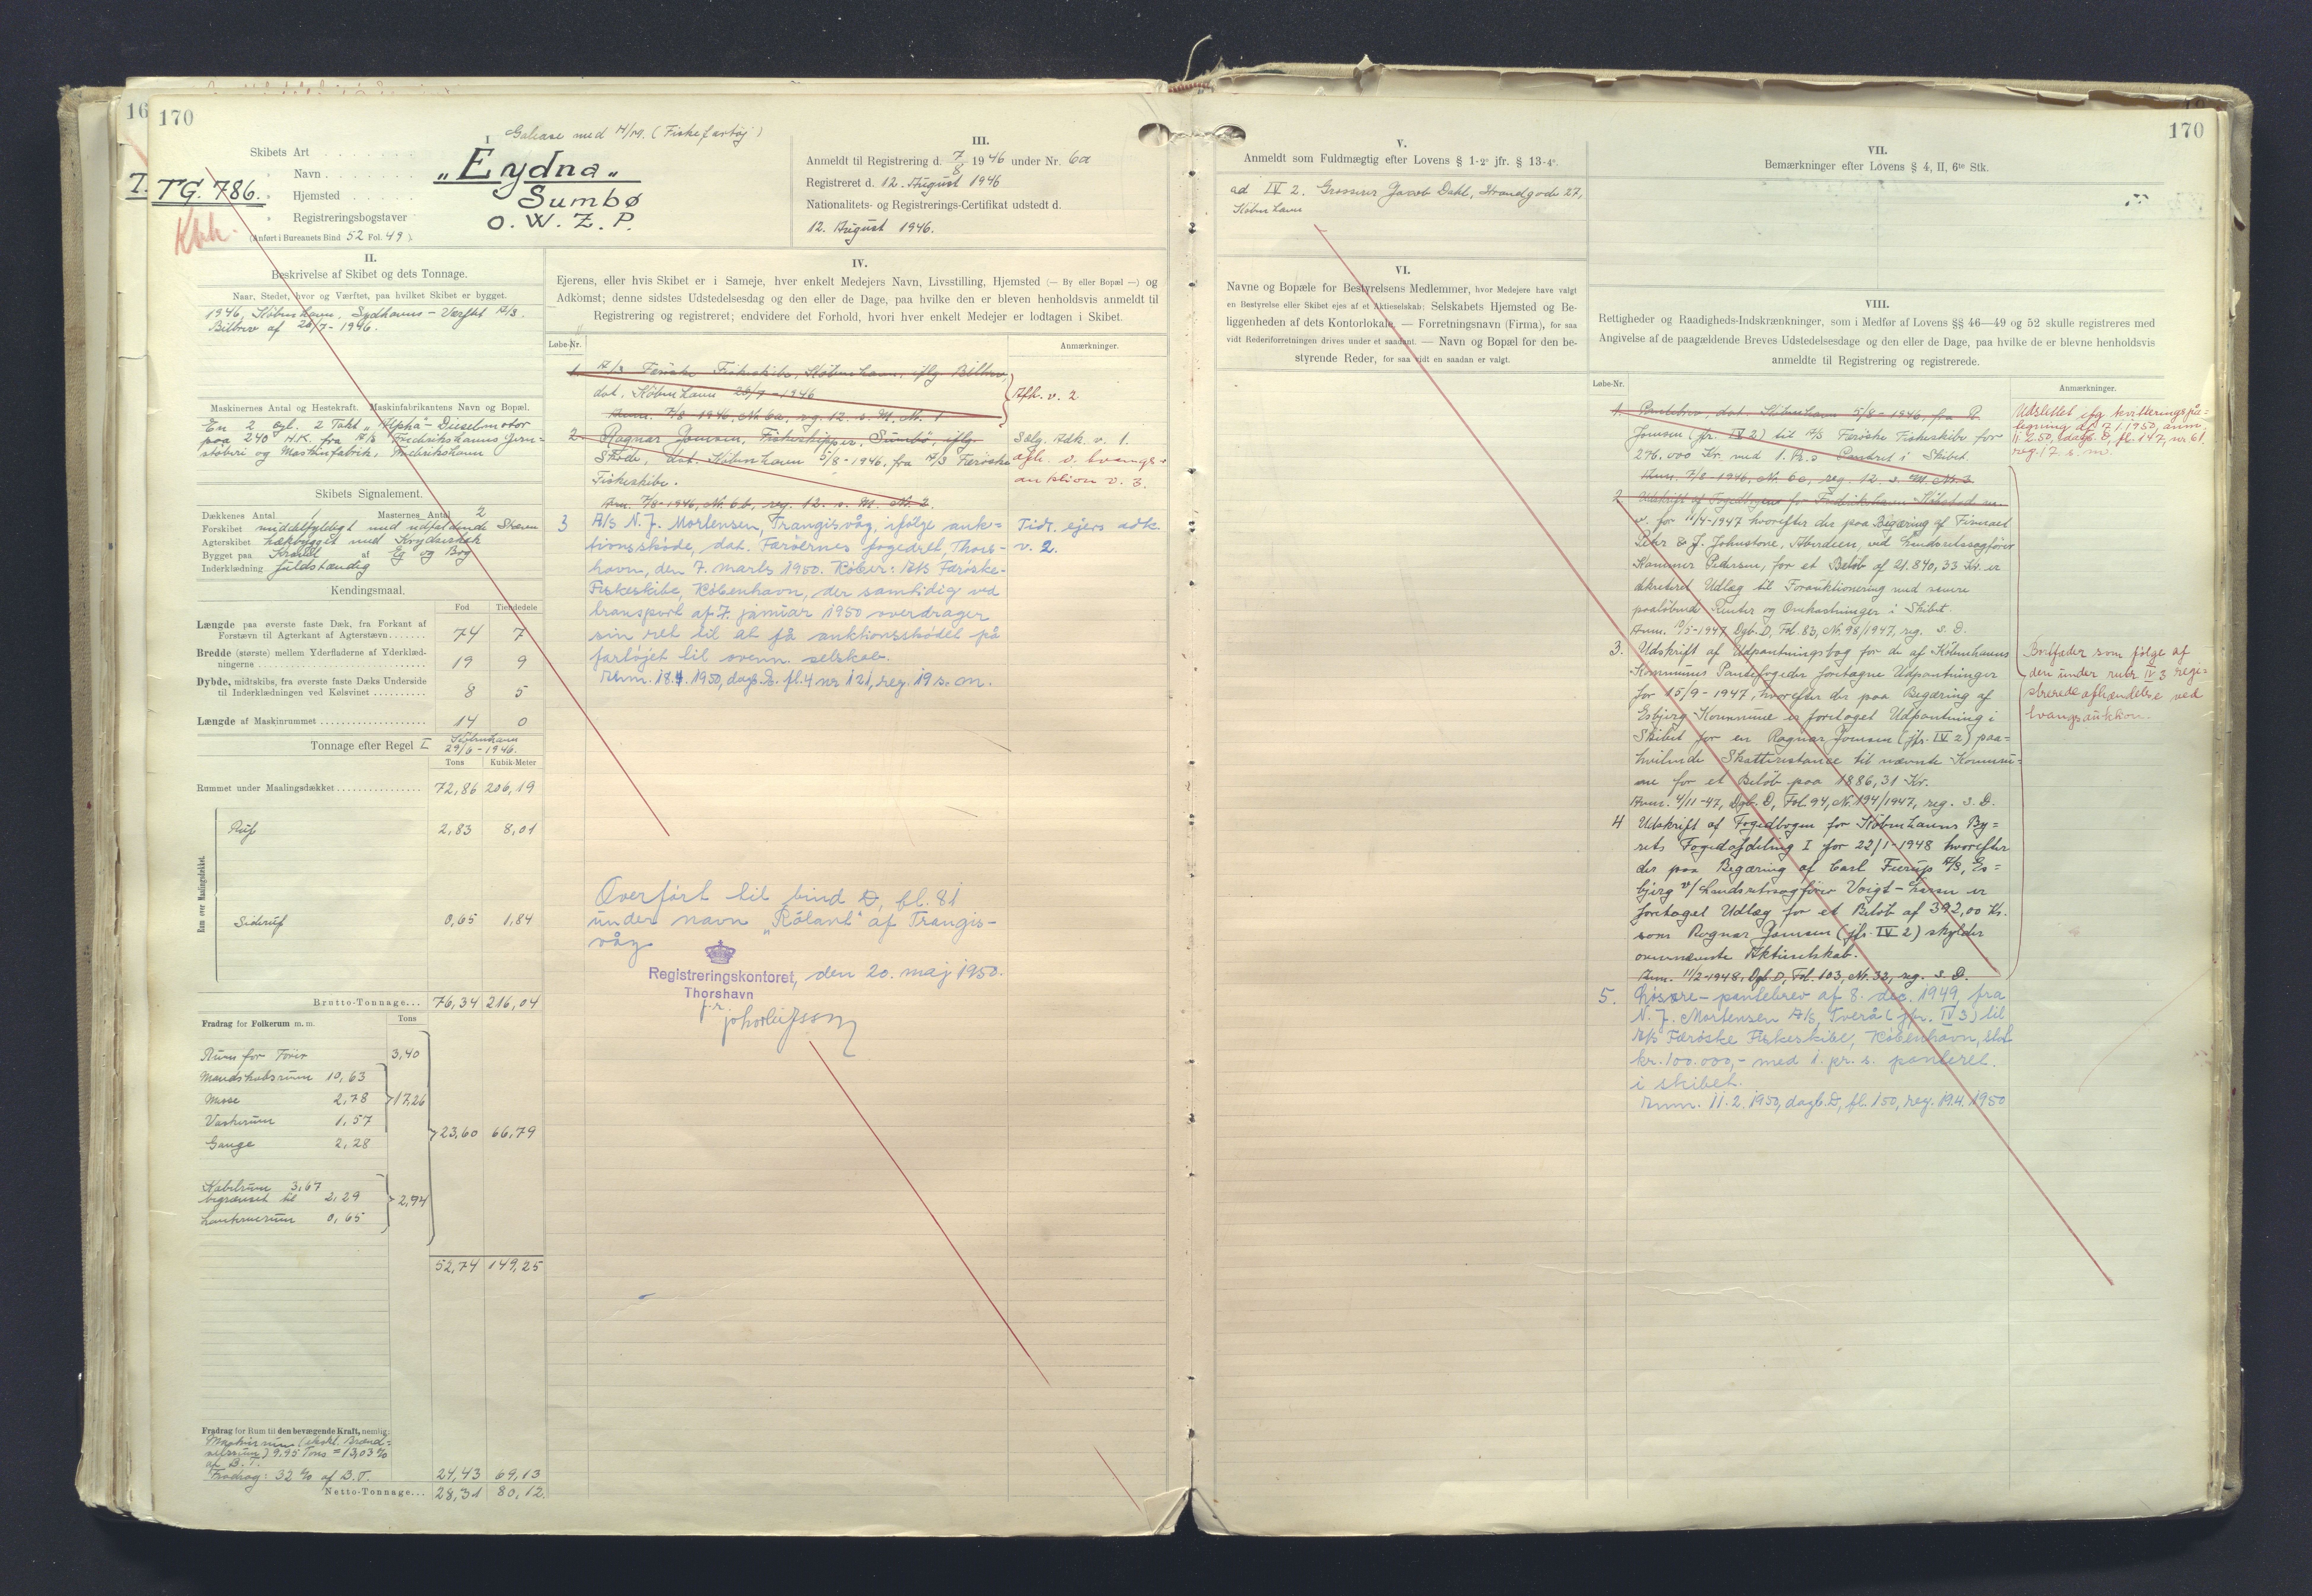 16
170
I
Galease med H/M. (Fiskefartøj)
Skibets Art
" Navn
„Eydna"
T.
TG. 786.
" Hjemsted
Sumbø
" Registreringsbogstaver
O. W. Z. P.
Kbh.
(Anført i Bureauets Bind 52 Fol. 49).
III.
Anmeldt til Registrering d. 7/8 1946 under Nr. 6a
Registreret d. 12. August 1946
Nationalitets- og Registrerings-Certifikat udstedt d.
12. August 1946.
II.
Beskrivelse af Skibet og dets Tonnage.
Naar, Stedet, hvor og Værftet, paa hvilket Skibet er bygget.
1946, København, Sydhavns-Værftet A/S.
Bilbrev af 28/7-1946.
Maskinernes Antal og Hestekraft. Maskinfabrikantens Navn og Bopæl.
En 2 cyl. 2 Takt „Alpha"-Dieselmotor
paa 240 H.K. fra A/S Frederikshavns Jern-
støberi og Maskinfabrik, Frederikshavn
Skibets Signalement.
Dækkenes Antal 1 Masternes Antal 2
Forskibet middelfyldigt med udfaldende Stævn
Agterskibet hækbygget med Krydserhæk
Bygget paa Kravel af Eg og Bøg
Inderklædning fuldstændig
Kendingsmaal.
Fod Tiendedele
Længde paa øverste faste Dæk, fra Forkant af
Forstævn til Agterkant af Agterstævn 74 7
Bredde (største) mellem Yderfladerne af Yderklæd-
ningerne 19 9
Dybde, midtskibs, fra øverste faste Dæks Underside
til Inderklædningen ved Kølsvinet 8 5
Længde af Maskinrummet 14 0
Tonnage efter Regel I København
29/6-1946.
Tons Kubik-Meter
Rummet under Maalingsdækket 72,86 206,19
Rum over Maalingsdækket.
Ruf 2,83 8,01
Sideruf 0,65 1,84
Brutto-Tonnage... 76,34 216,04
Fradrag for Folkerum m. m. Tons
Rum for Fører 3,40
Mandskabsrum 10,63
Messe 2,78 17,26
Vaskerum 1,57
23,60 66,79
Gange 2,28
Kabelrum 3,67
begrænset til 2,29 2,94
Lanternerum 0,65
52,74 149,25
Fradrag for Rum til den bevægende Kraft, nemlig:
Maskinrum (ekskl. Brænd-
selsrum) 9,95 Tons = 13,03 %
af B.T.
Fradrag: 32 % af B.T. 24,43 69,13
Netto-Tonnage... 28,31 80,12.
IV.
Ejerens, eller hvis Skibet er i Sameje, hver enkelt Medejers Navn, Livsstilling, Hjemsted (— By eller Bopæl —) og
Adkomst; denne sidstes Udstedelsesdag og den eller de Dage, paa hvilke den er bleven henholdsvis anmeldt til
Registrering og registreret; endvidere det Forhold, hvori hver enkelt Medejer er lodtagen i Skibet.
Løbe-Nr.
Anmærkninger.
1. A/S Færøske Fiskeskibe, København, iflg. Bilbrev,
dat. København 28/7-1946
Anm. 7/8 1946, Nr. 6a, reg. 12. s. M. Nr. 1
Afh. v. 2
2. Ragnar Joensen, Fiskeskipper, Sumbø, iflg.
Skøde, dat. København 5/8-1946, fra A/S Færøske
Fiskeskibe.
Anm. 7/8-1946, Nr. 6b, reg. 12. s. M. Nr. 2.
Sælg. Adk. v. 1.
afh. v. tvangs-
auktion v. 3.
3 A/S N. J. Mortensen, Trangisvåg, ifølge auk-
tionsskøde, dat. Færøernes fogedret, Thors-
havn, den 7. marts 1950. Køber: A/S Færøske-
Fiskeskibe, København, der samtidig ved
transport af 7. januar 1950 overdrager
sin ret til at få auktionsskødet på
fartøjet til ovenn. selskab.
Anm. 18.4. 1950, dagb. E. fl. 4 nr 121, reg. 19 s. m.
Tidl. ejers adk.
v. 2.
Overført til bind D, fl. 81
under navn „Róland" af Trangis-
våg
Registreringskontoret, den 20. maj 1950.
Thorshavn
f. r.
170
V.
Anmeldt som Fuldmægtig efter Lovens § 1-2° jfr. § 13-4°.
ad IV 2. Grosserer Jacob Dahl, Strandgade 27,
København
VI.
Navne og Bopæle for Bestyrelsens Medlemmer, hvor Medejere have valgt
en Bestyrelse eller Skibet ejes af et Aktieselskab; Selskabets Hjemsted og Be-
liggenheden af dets Kontorlokale. — Forretningsnavn (Firma), for saa
vidt Rederiforretningen drives under et saadant. — Navn og Bopæl for den be-
styrende Reder, for saa vidt en saadan er valgt.
VII.
Bemærkninger efter Lovens § 4, II, 6te Stk.
VIII.
Rettigheder og Raadigheds-Indskrænkninger, som i Medfør af Lovens §§ 46—49 og 52 skulle registreres med
Angivelse af de paagældende Breves Udstedelsesdage og den eller de Dage, paa hvilke de er blevne henholdsvis
anmeldte til Registrering og registrerede.
Løbe-Nr.
Anmærkninger.
1. Pantebrev, dat. København 5/8-1946, fra R.
Joensen (jfr. IV 2) til A/S Færøske Fiskeskibe for
276.000 Kr. med 1. Pr.s Panteret i Skibet.
Anm. 7/8-1946, Nr. 6c, reg. 12. s. M. Nr. 3
Udslettet ifg kvitteringspå-
tegning af 7.1.1950, anm.
11.2.50, dagb. D, fl. 147, nr 61,
reg. 17. s. m.
2 Udskrift af Fogedbogen for Frederikshavn Købstad m.
v. for 11/4-1947 hvorefter der paa Begæring af Firmaet
Peter & J. Johnstone, Aberdeen, ved Landsretssagfører
Kammer Pedersen, for et Beløb af 21.840,33 Kr. er
dekreteret Udlæg til Forauktionering med senere
paaløbende Renter og Omkostninger i Skibet.
Anm. 19/5-1947, Dgb. D, Fol. 83, Nr. 98/1947, reg. s. D.
3. Udskrift af Udpantningsbog for de af Københavns
Kommunes Pantefogeder foretagne Udpantninger
for 15/9-1947, hvorefter der paa Begæring af
Esbjerg Kommune er foretaget Udpantning i
Skibet for en Ragnar Joensen (jfr. IV 2) paa-
hvilende Skatterestance til nævnte Kommu-
ne for et Beløb paa 1886,31 Kr.
Anm. 4/11-47, Dgb. D, Fol. 94, Nr. 194/1947, reg. s. D.
Bortfalder som følge af
den under rubr. IV 3 regi-
strerede afhændelse ved
tvangsauktion.
4 Udskrift af Fogedbogen for Københavns By-
rets Fogedafdeling I for 22/1-1948 hvorefter
der paa Begæring af Carl Feerup A/S, Es-
bjerg v/ Landsretssagfører Voigt-Larsen er
foretaget Udlæg for et Beløb af 392,00 Kr.
som Ragnar Joensen (jfr. IV 2) skylder
ovennævnte Aktieselskab.
Anm. 11/2-1948, Dgb. D, Fol. 103, Nr. 32, reg. s. D.
5. Løsøre-pantebrev af 8. dec. 1949, fra
N. J. Mortensen A/S, Tverå (jfr. IV 3) til
A/S Færøske Fiskeskibe, København, stort
kr. 100.000,- med 1. pr. s. panteret
i skibet.
Anm. 11.2.1950, dagb. D, fl. 150, reg. 19.4.1950